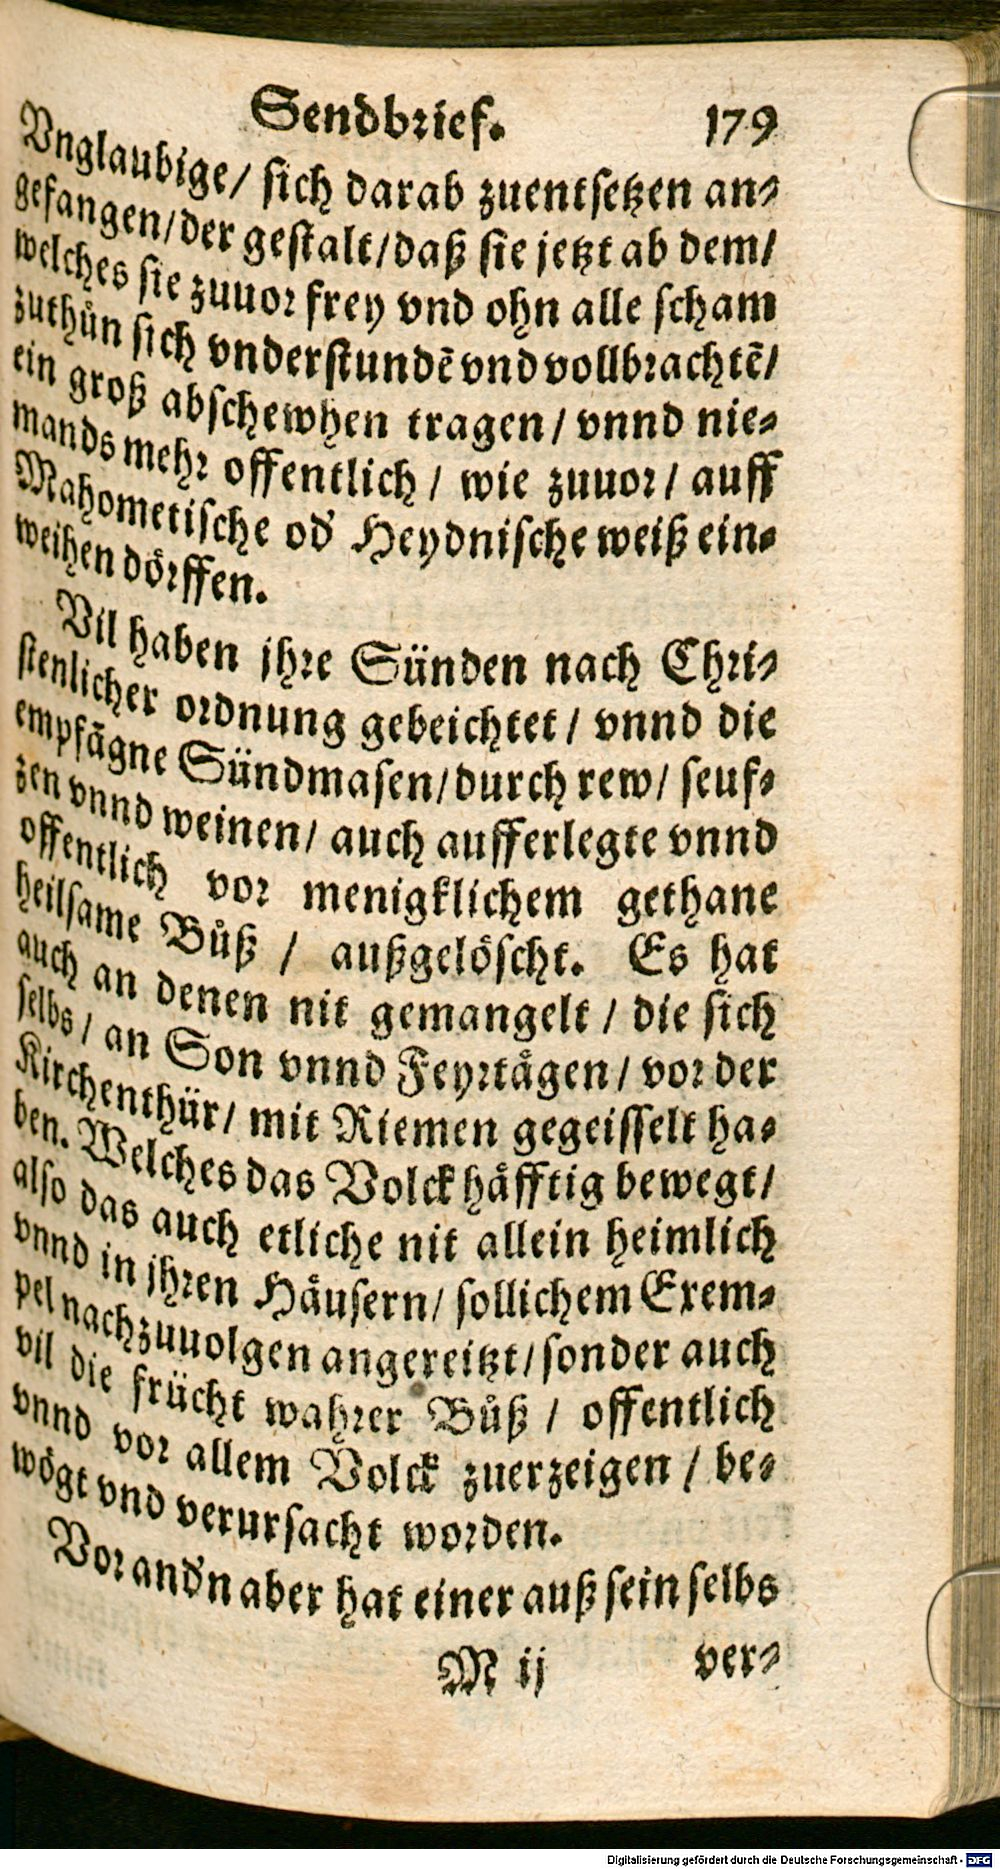 Sendbrief. 179
Vnglaubige/ sich darab zuentsetzen an⸗
gefangen/der gestalt/daß sie jetzt ab dem/
welches sie zuuor frey vnd ohn alle scham
zuthůn sich vnderstundē vnd vollbrachtē/
ein groß abschewhen tragen/ vnnd nie⸗
mands mehr offentlich/ wie zuuor/ auff
Mahometische od' Heydnische weiß ein⸗
weihen dörffen.
Vil haben jhre Sünden nach Chri⸗
stenlicher ordnung gebeichtet/ vnnd die
empfāgne Sündmasen/durch rew/ seuf⸗
zen vnnd weinen/ auch aufferlegte vnnd
offentlich vor menigklichem gethane
heilsame Bůß / außgelöscht. Es hat
auch an denen nit gemangelt / die sich
selbs/ an Son vnnd Feyrtägen/ vor der
Kirchenthür/ mit Riemen gegeisselt ha⸗
ben. Welches das Volck häfftig bewegt/
also das auch etliche nit allein heimlich
vnnd in jhren Häusern/ sollichem Exem⸗
pel nachzuuolgen angereitzt/sonder auch
vil die frücht wahrer Bůß / offentlich
vnnd vor allem Volck zuerzeigen / be⸗
wögt vnd verursacht worden.
Vor and'n aber hat einer auß sein selbs
M ij ver⸗
Digitalisierung gefördert durch die Deutsche Forschungsgemeinschaft - DFG